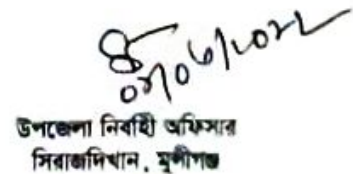 ০৭/০৬/২০২২
উপজেলা নির্বাহী অফিসার
সিরাজদিখান, মুন্সীগঞ্জ